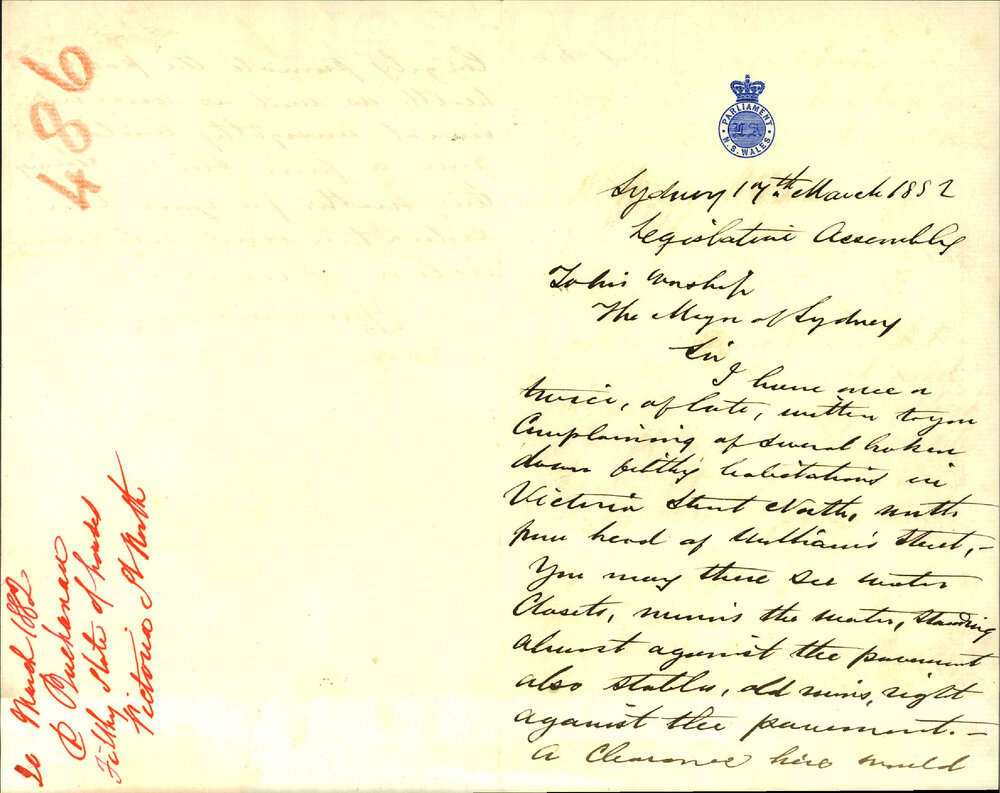 486
20 March 1882
D Buchanan
Filthy State of houses
Victoria St North
PARLIAMENT
N.S. WALES
Sydney 17th March 1882
Legislative Assembly
To his Worship
The Mayor of Sydney
Sir
I have once or
twice, of late, written to you
Complaining of several broken
down filthy habitations in
Victoria Street North, north
from head of William's Street,-
You may there see water
Closets, minus the water, standing
almost against the pavement
also stables, old ruins, right
against the pavement.-
A Clearance here would